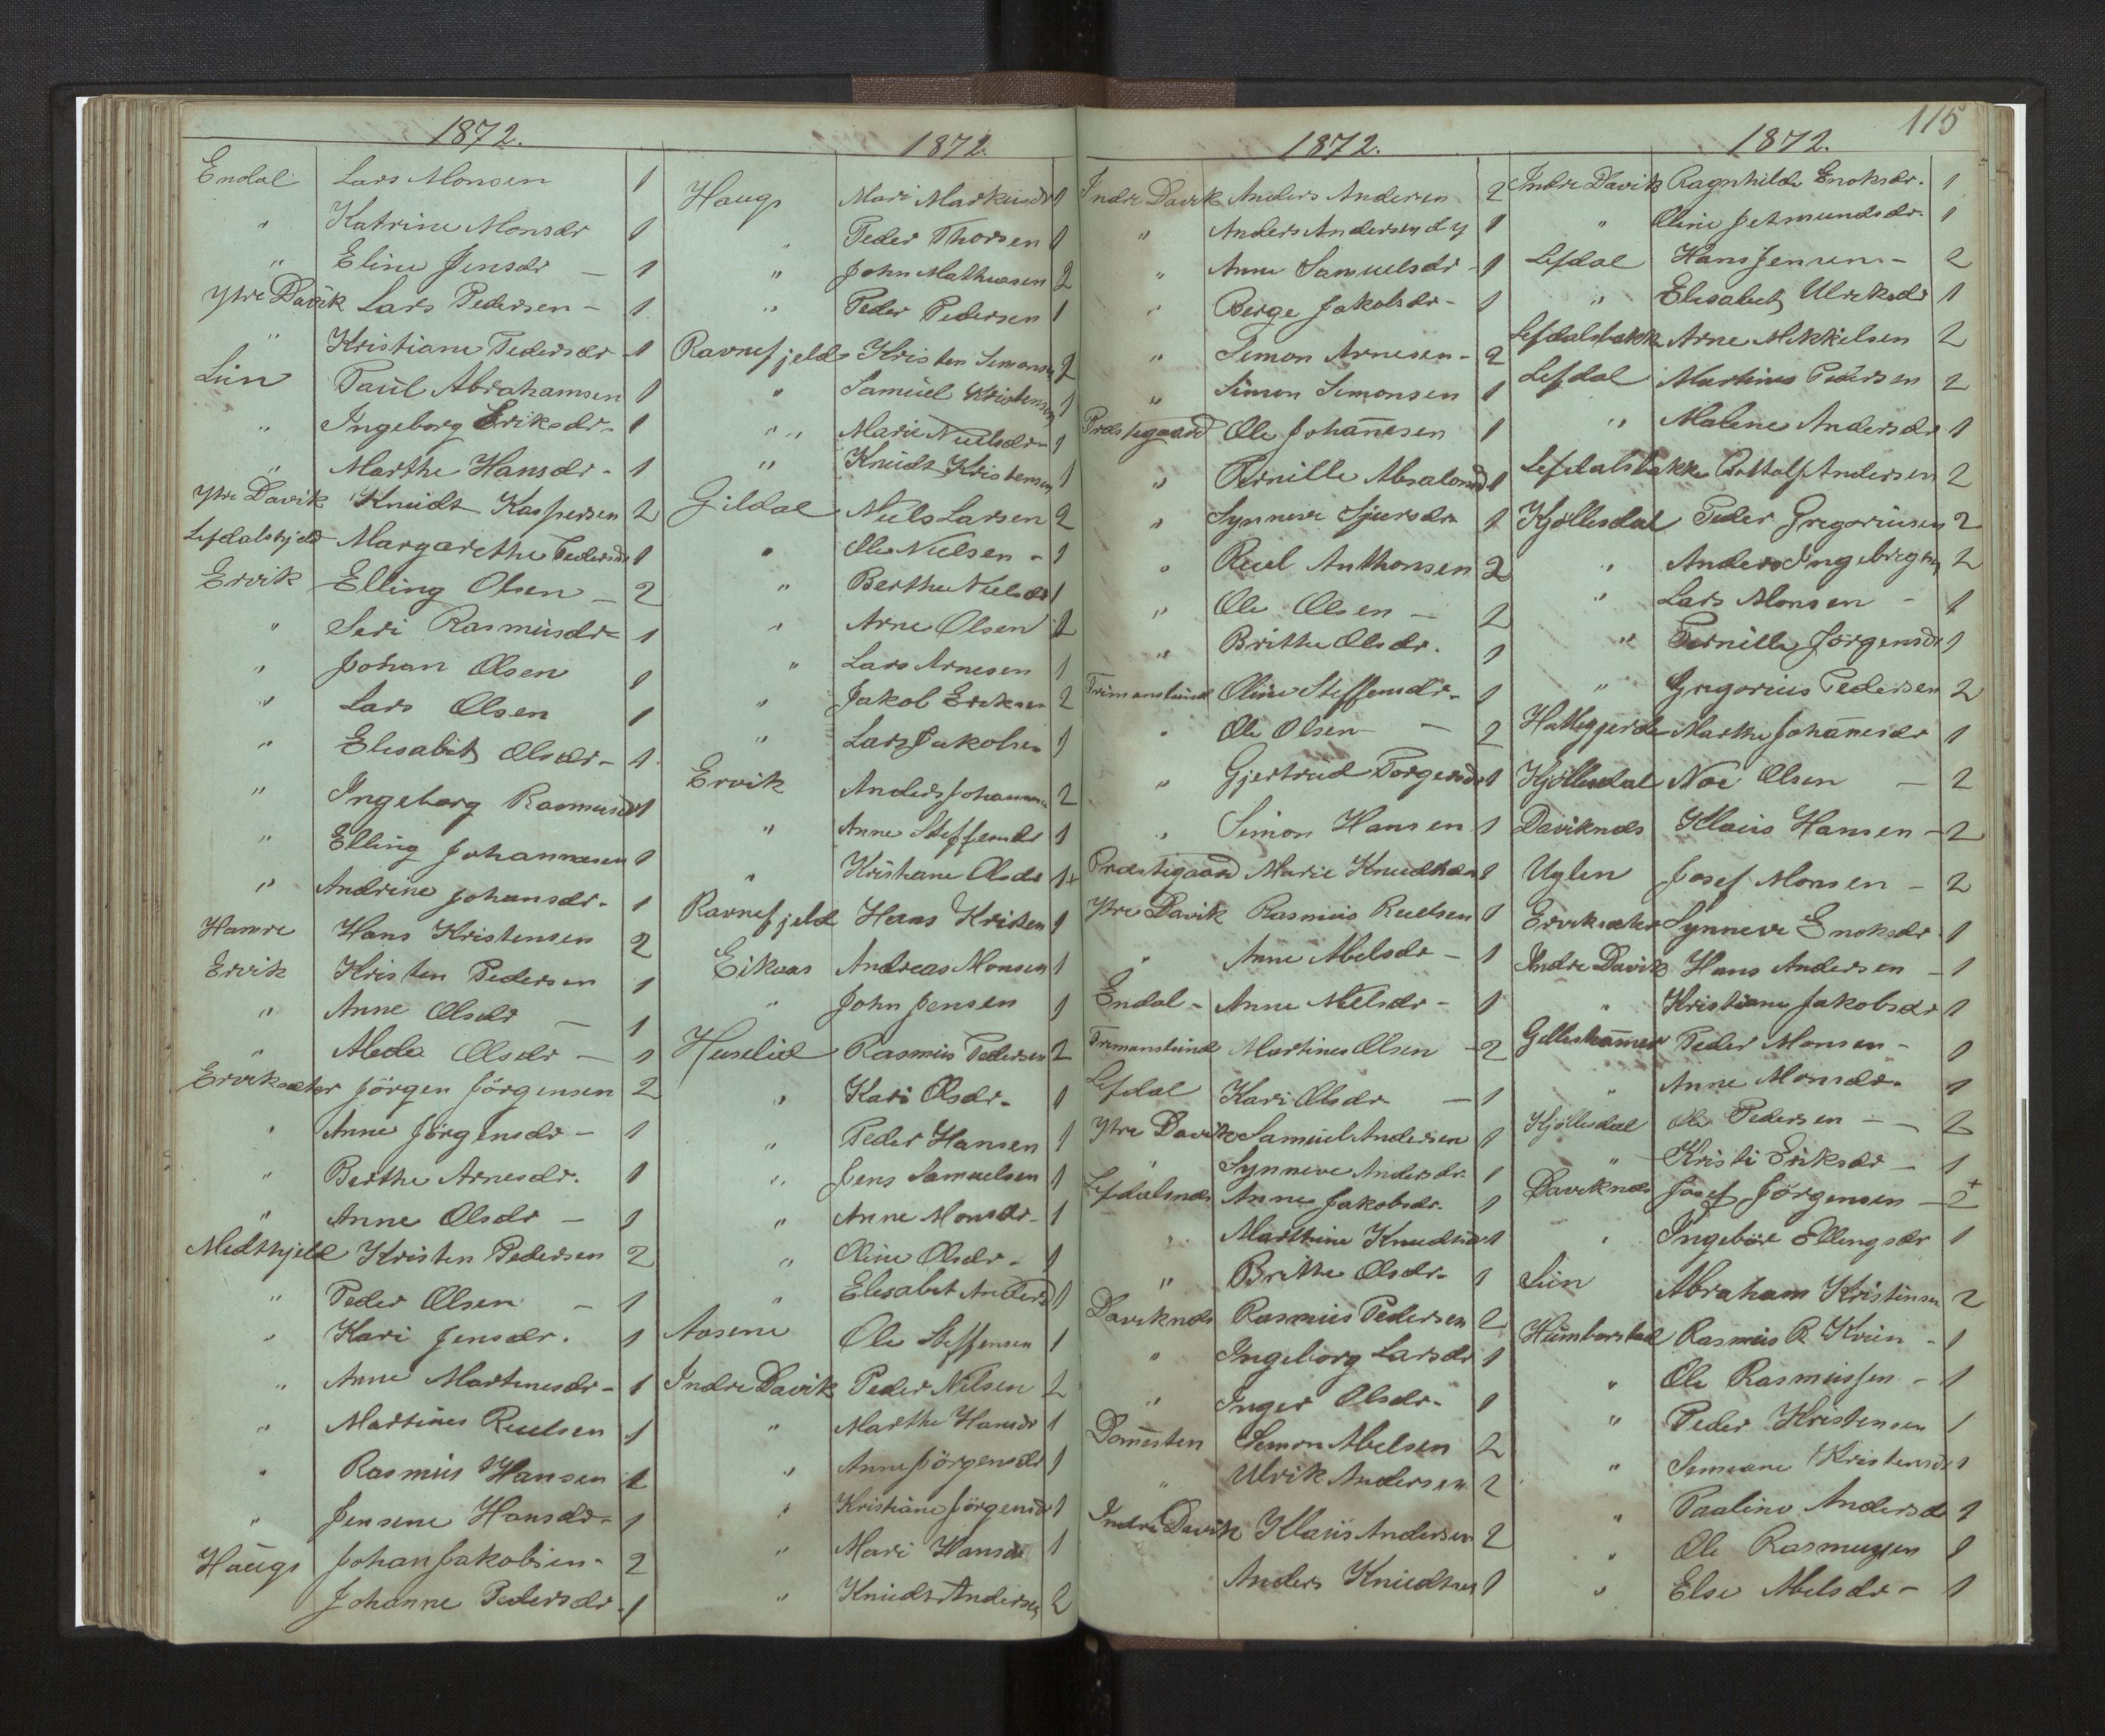 115
1872.
Endal Lars Monsen 1
" Katrine Monsdr 1
" Eline Jensdr — 1
Ytre Davik Lars Pedersen — 1
" Kristiane Pedersdr 1
Lün Paul Abrahamsen 1
" Ingeborg Eriksdr - 1
" Marthe Hansdr - 1
Ytre Davik Knudt Kaspersen 2
Lefdalshjeld Margarethe Pedersdr 1
Ervik Elling Olsen — 2
" Seri Rasmusdr - 1
" Johan Olsen 1
" Lars Olsen 1
" Elisabet Olsdr - 1
" Ingeborg Rasmusdr 1
" Elling Johannesen 1
" Andrine Johansdr - 1
Hamre Hans Kristensen 2
Ervik Kristen Pedersen 1
" Anne Olsdr — 1
" Aleda Olsdr — 1
Erviksæter Jörgen Jörgensen 2
" Anne Jörgensdr - 1
" Berthe Arnesdr. 1
" Anne Olsdr — 1
Medthjeld Kristen Pedersen 2
" Peder Olsen — 1
" Kari Jensdr. 1
" Anne Martinesdr - 1
" Martines Reelsen 1
" Rasmus Hansen 1
" Jensene Hansdr - 1
Haugs Johan Jakobsen - 2
Johanne Pedersdr - 1
1872.
Haugs Mari Markusdr 1
" Peder Thorsen 1
" John Mathiasen 2
" Peder Pedersen 1
Ravnefjeld Kristen Simonsen 2
" Samuel Kristensen 1
" Marie Nielsdr - 1
" Knudt Kristensen 1
Gildal Niels Larsen 2
" Ole Nielsen - 1
" Berthe Nielsdr 1
" Arne Olsen 2
" Lars Arnesen 1
" Jakob Eriksen 2
" Lars Jakobsen 1
Ervik Anders Johannesen 2
" Anne Steffensdr 1
" Kristiane Olsdr 1+
Ravnefjeld Hans Kristen 1
Eikaas Andreas Monsen 1
" John Jensen 1
Huselid Rasmus Pedersen 2
" Kari Olsdr - 1
" Peder Hansen 1
" Jens Samuelsen 1
" Anne Monsdr - 1
" Oline Olsdr - 1
" Elisabet Andersd 1
Aasene Ole Steffensen 1
Indre Davik Peder Nilsen 2
" Marthe Hansdr 1
" Anne Jörgensdr 1
" Kristiane Jörgensdr 1
" Mari Hansdr 1
" Knudt Andersen 2
1872.
Indre Davik Anders Andersen 2
" Anders Andersen d y 1
" Anne Samuelsdr - 1
" Berge Jakobsdr - 1
" Simon Arnesen - 2
" Simon Simonsen 1
Præstegaard Ole Johannesen 1
" Pernille Absalonsd 1
" Synneve Sjursdr 1
" Reel Anthonsen 2
" Ole Olsen — 2
" Brithe Olsdr. 1
Frimanslund Oline Steffensdr - 1
" Ole Olsen — 2
" Gjertrud Torgersdr 1
" Simon Hansen 1
Præstegaard Marie Knudtsdr 1
Ytre Davik Rasmus Reelsen 1
" Anne Abelsdr - 1
Endal - Anne Nilsdr - 1
Frimanslund Martines Olsen - 2
Lefdal Kari Olsdr — 1
Ytre Davik Samuel Andersen 1
" Synneve Andersdr. 1
Lefdalsnæs Anne Jakobsdr. 1
" Marthine Knudtsdr 1
" Brithe Olsdr - 1
Daviknæs Rasmus Pedersen 2
" Ingeborg Larsdr 1
" Inger Olsdr - 1
Domesten Simon Abelsen 2
" Ulrik Andersen 2
Indre Davik Klaus Andersen 2
Anders Knudtsen 1
1872.
Indre Davik Ragnhilde Enoksdr. 1
" Oline Jetmundsdr. 1
Lefdal Hans Jensen - 2
" Elisabet Ulriksdr 1
Lefdalsbakk Arne Mikkelsen 2
Lefdal Martinus Pedersen 2
" Malene Andersdr 1
Lefdalsbakke Andersen 2
Kjöllesdal Peder Gregoriusen 2
" Anders Ingebrigtsen 2
" Lars Monsen - 1
" Pernille Jörgensdr 1
" Gregorius Pedersen 2
Hatlegjerde Marthe Johannesdr 1
Kjöllesdal Noe Olsen — 2
Daviknæs Klaus Hansen - 2
Uglen Josef Monsen - 2
Erviksæter Synneve Enoksdr - 1
Indre Davik Hans Andersen - 1
" Kristiane Jakobsdr 1
Gelleshammer Peder Monsen - 1
" Anne Monsdr. 1
Kjöllesdal Ole Pedersen - - 2
" Kristi Eriksdr - 1
Daviknæs Josef Jörgensen - 2+
" Ingebör Ellingsdr 1
Lün Abraham Kristensen 2
Humborstad Rasmus R Kvien - 1
" Ole Rasmussen - 1
" Peder Kristensen 1
" Simeane Kristensdr 1
" Paaline Andersdr 1
" Ole Rasmussen 1
" Else Abelsdr - 1